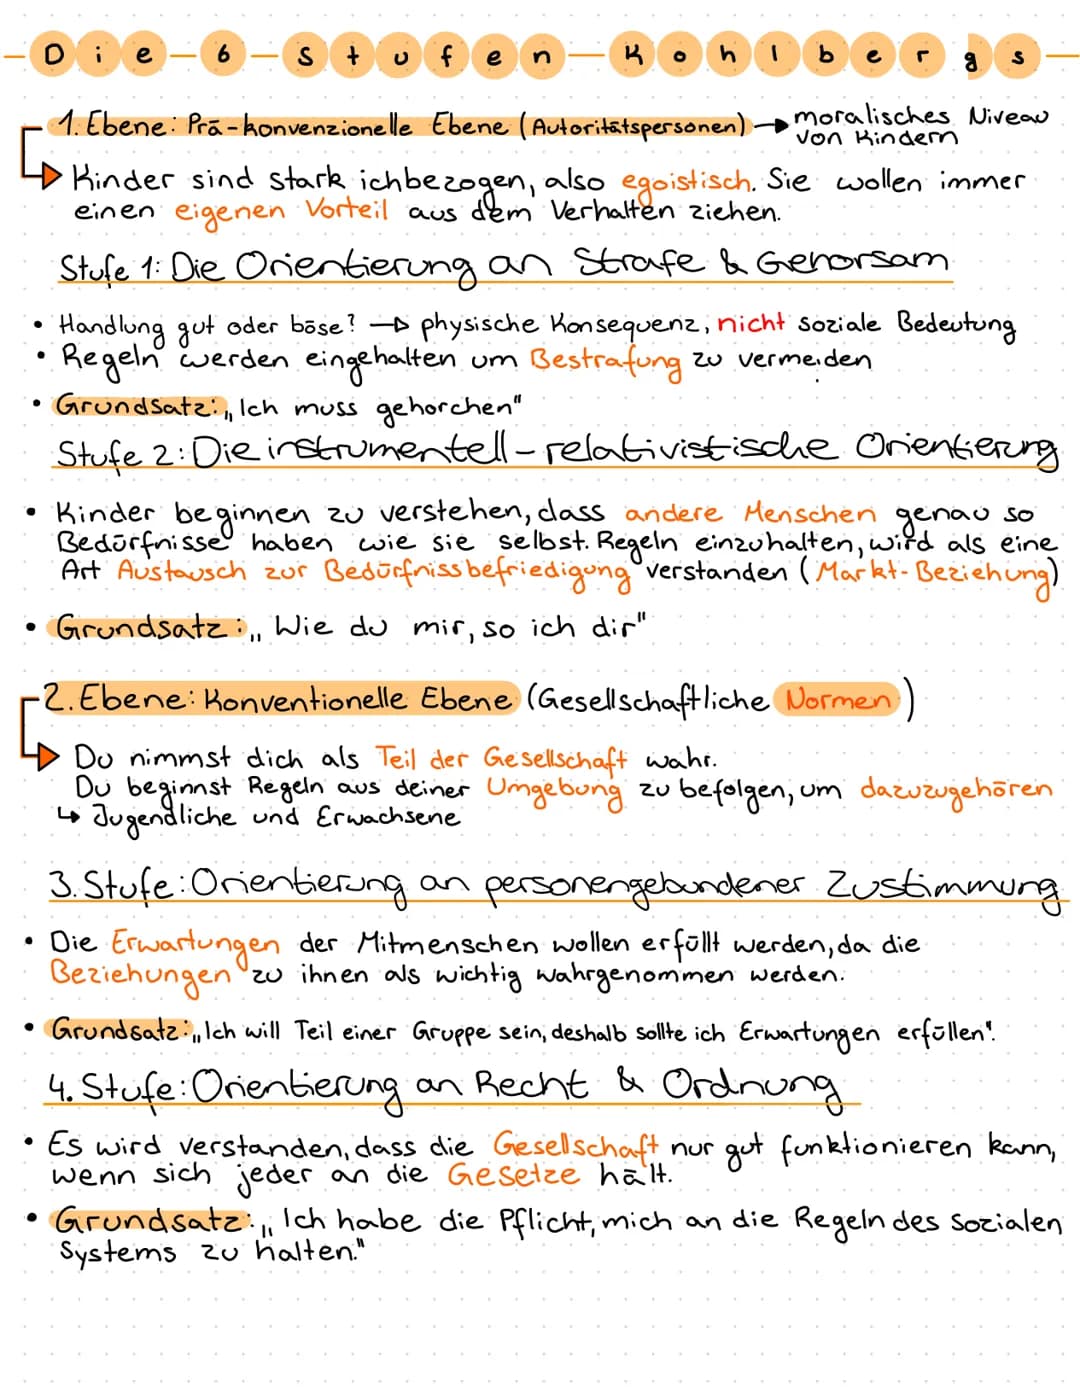 Die 6 Stufen Kohlbergs
1. Ebene: Prä-konvenzionelle Ebene (Autoritätspersonen) → moralisches Niveau
von Kindern
Kinder sind stark ichbezogen, also egoistisch. Sie wollen immer
einen eigenen Vorteil aus dem Verhalten ziehen.
Stufe 1: Die Orientierung an Strafe & Gehorsam
• Handlung gut oder böse? → physische Konsequenz, nicht soziale Bedeutung
• Regeln werden eingehalten um Bestrafung zu vermeiden
• Grundsatz: „Ich muss gehorchen"
Stufe 2: Die instrumentell-relativistische Orientierung
• Kinder beginnen zu verstehen, dass andere Menschen genau so
Bedürfnisse haben wie sie selbst. Regeln einzuhalten, wird als eine
Art Austausch zur Bedürfnissbefriedigung verstanden (Markt-Beziehung)
• Grundsatz: „Wie du mir, so ich dir"
2. Ebene: Konventionelle Ebene (Gesellschaftliche Normen)
Du nimmst dich als Teil der Gesellschaft wahr.
Du beginnst Regeln aus deiner Umgebung zu befolgen, um dazuzugehören
↳ Jugendliche und Erwachsene
3. Stufe: Orientierung an personengebundener Zustimmung
• Die Erwartungen der Mitmenschen wollen erfüllt werden, da die
Beziehungen zu ihnen als wichtig wahrgenommen werden.
• Grundsatz: „Ich will Teil einer Gruppe sein, deshalb sollte ich Erwartungen erfüllen".
4. Stufe: Orientierung an Recht & Ordnung
• Es wird verstanden, dass die Gesellschaft nur gut funktionieren kann,
wenn sich jeder an die Gesetze hält.
• Grundsatz: „Ich habe die Pflicht, mich an die Regeln des sozialen
Systems zu halten."